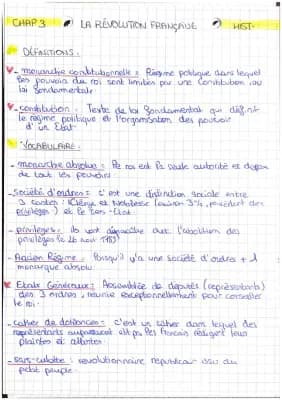 CHAP 3 LA RÉVOLUTION FRANÇAISE HIST.
DÉFINITIONS :
- monarchie constitutionnelle : Régime politique dans lequel
les pouvoirs du roi sont limités par une constitution ou
loi fondamentale
- constitution : Texte de loi fondamentale qui définit
le régime politique et l'organisation des pouvoirs
d'un Etat
VOCABULAIRE :
- monarchie absolue : Le roi est la seule autorité et dispose
de tout les pouvoirs
- société d'ordres : C'est une distinction sociale entre
3 ordres : (Clergé et Noblesse (environ 3%, possèdent des
privilèges) et le tiers-Etat.
- privilèges : ils vont disparaître avec l'abolition des
privilèges le 1789
- Ancien Régime : Puisqu'il y'a une société d'ordres + 1
monarque absolu
Etats Généraux : Assemblée de députés (représentants)
des 3 ordres, réunie exceptionnellement pour conseiller
le roi.
- cahier de doléances : c'est un cahier dans lequel des
représentants les français rédigent leurs
plaintes et attentes
- sans-culotte : revolutionnaire républicain issu du
petit peuple.